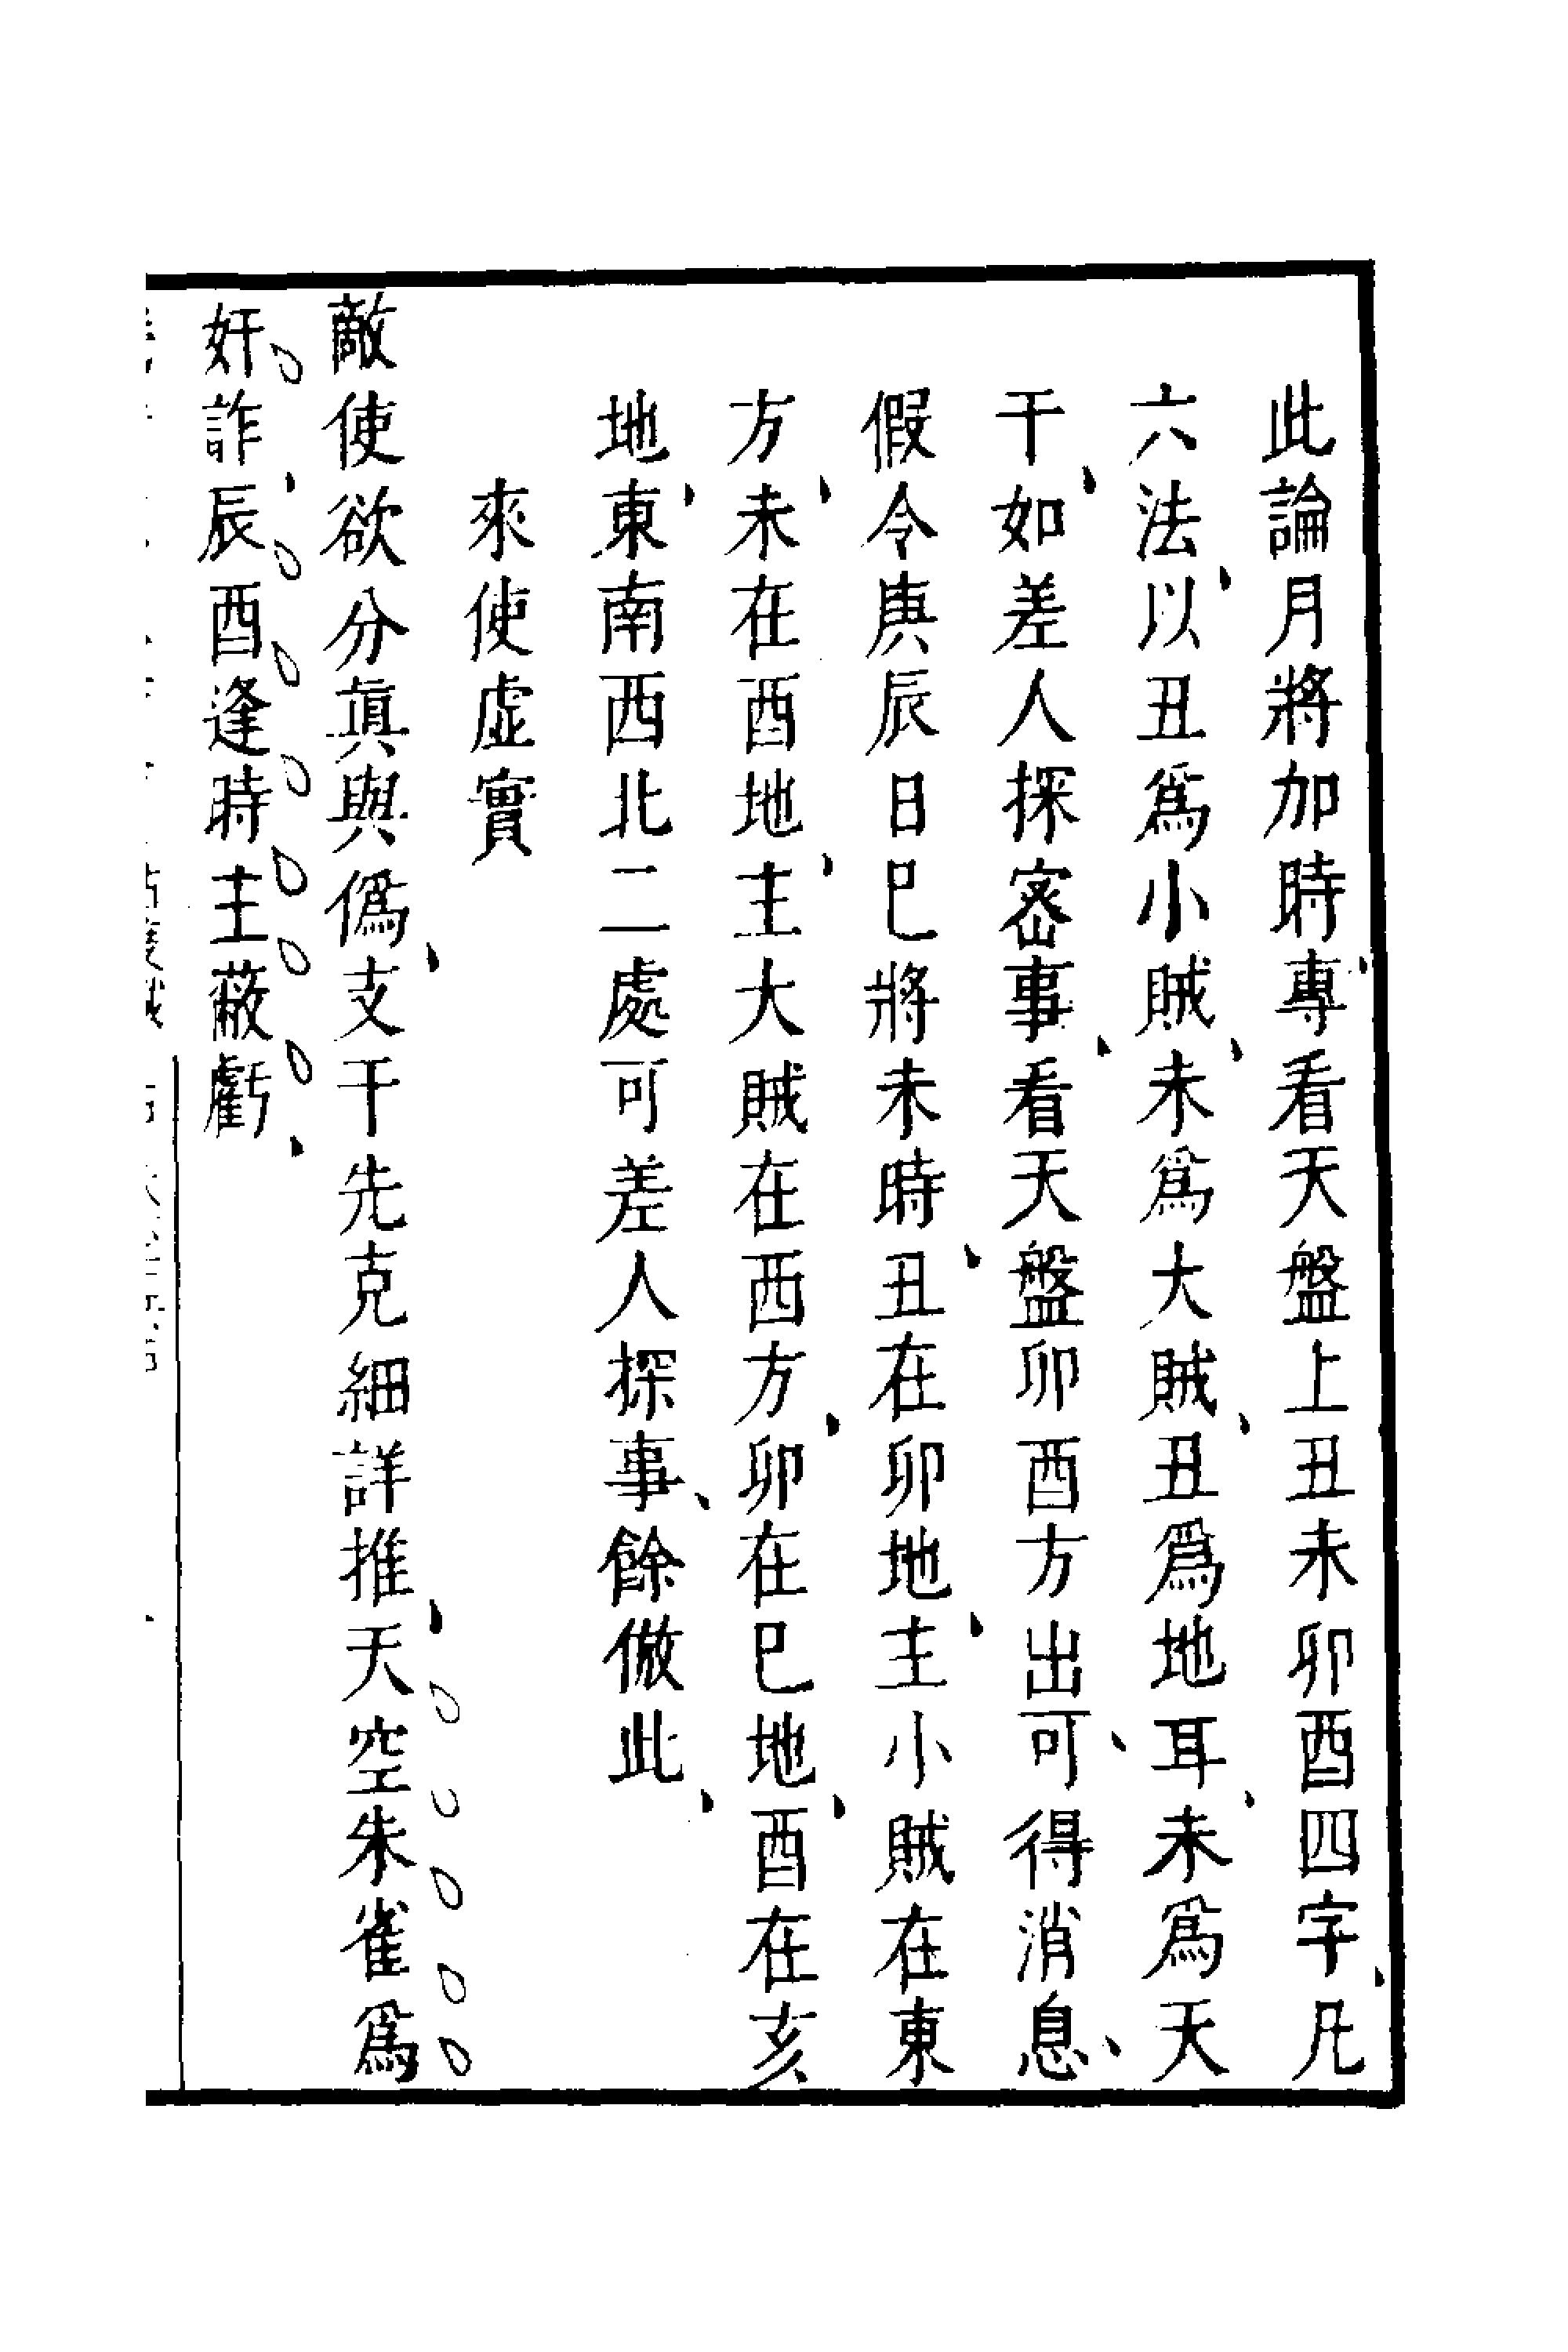 此論月將加時專看天盤上丑未卯酉四字凡
六法以丑爲小賊未爲大賊丑爲地耳未爲天
干如差人探密事看天盤卯酉方出可得消息
假令庚辰日巳將未時丑在卯地主小賊在東
方未在酉地主大賊在西方卯在巳地酉在亥
地東南西北二處可差人探事餘倣此
來使虛實
敵使欲分眞與僞支干先克細詳推天空朱雀爲
奸詐辰酉逢時主蔽虧